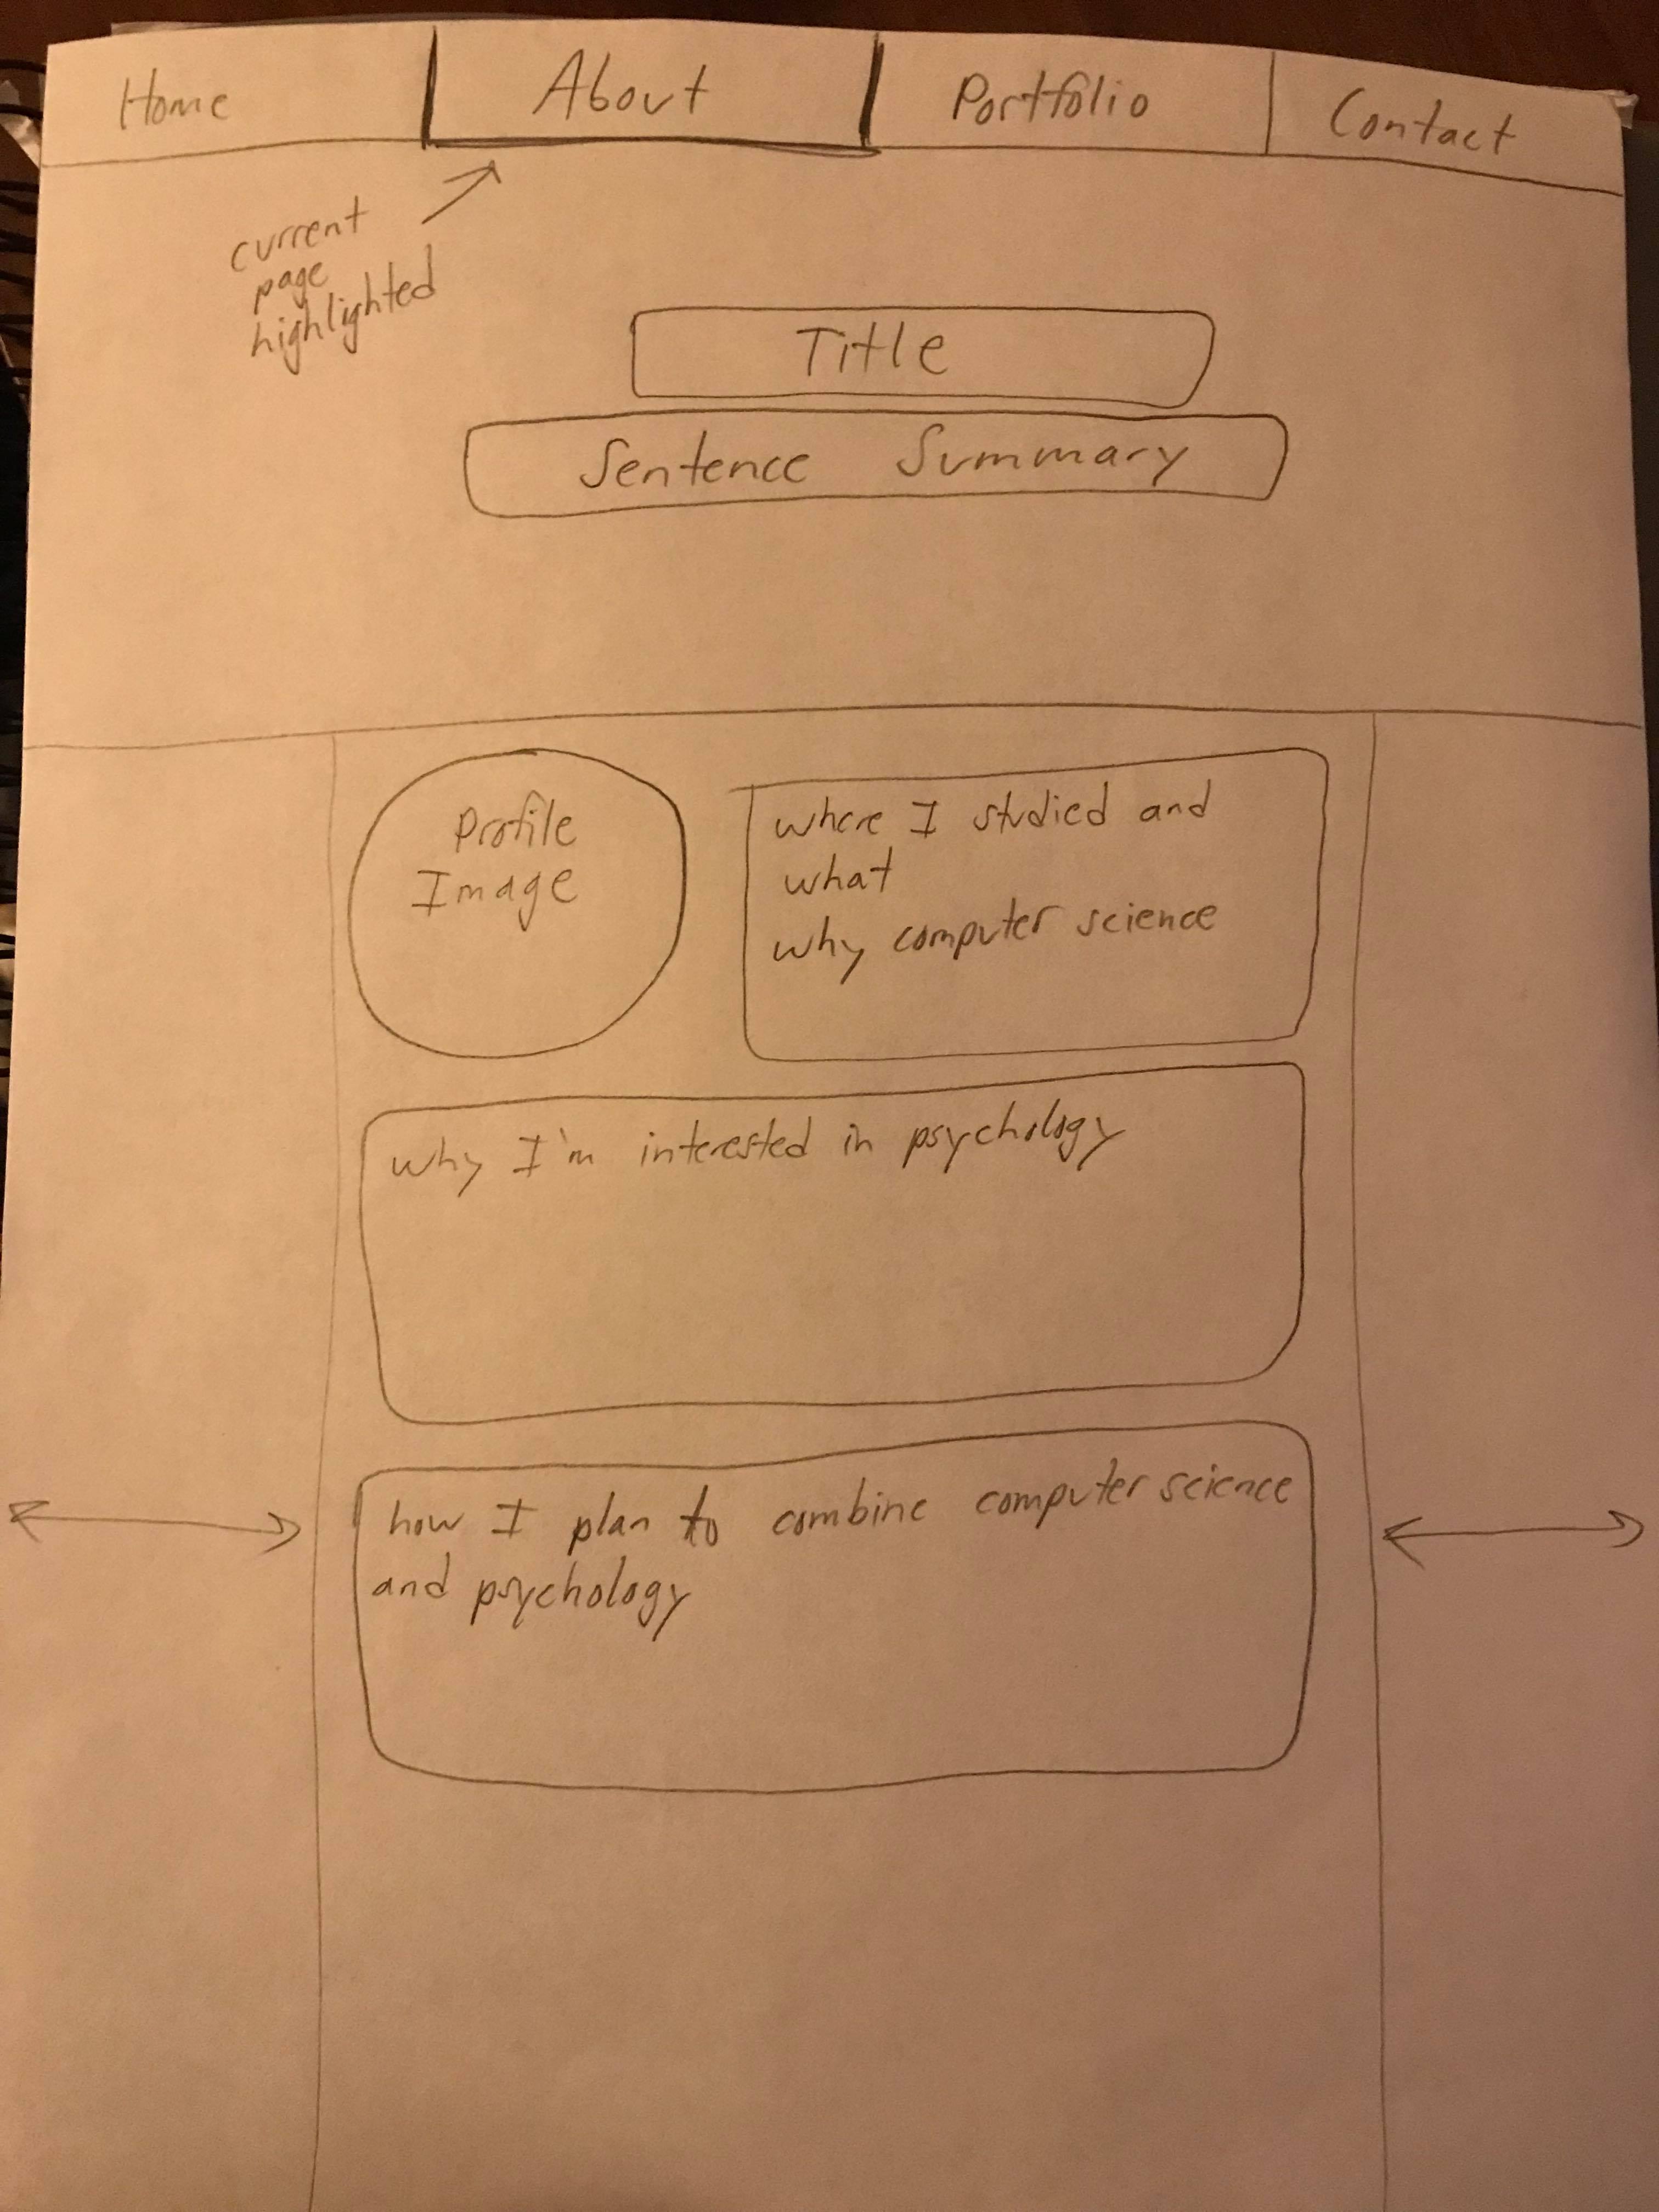 Home About Portfolio Contact
current
page
highlighted
Title
Sentence Summary
Profile
Image
where I studied and
what
why computer science
why I'm interested in psychology
how I plan to combine computer science
and psychology